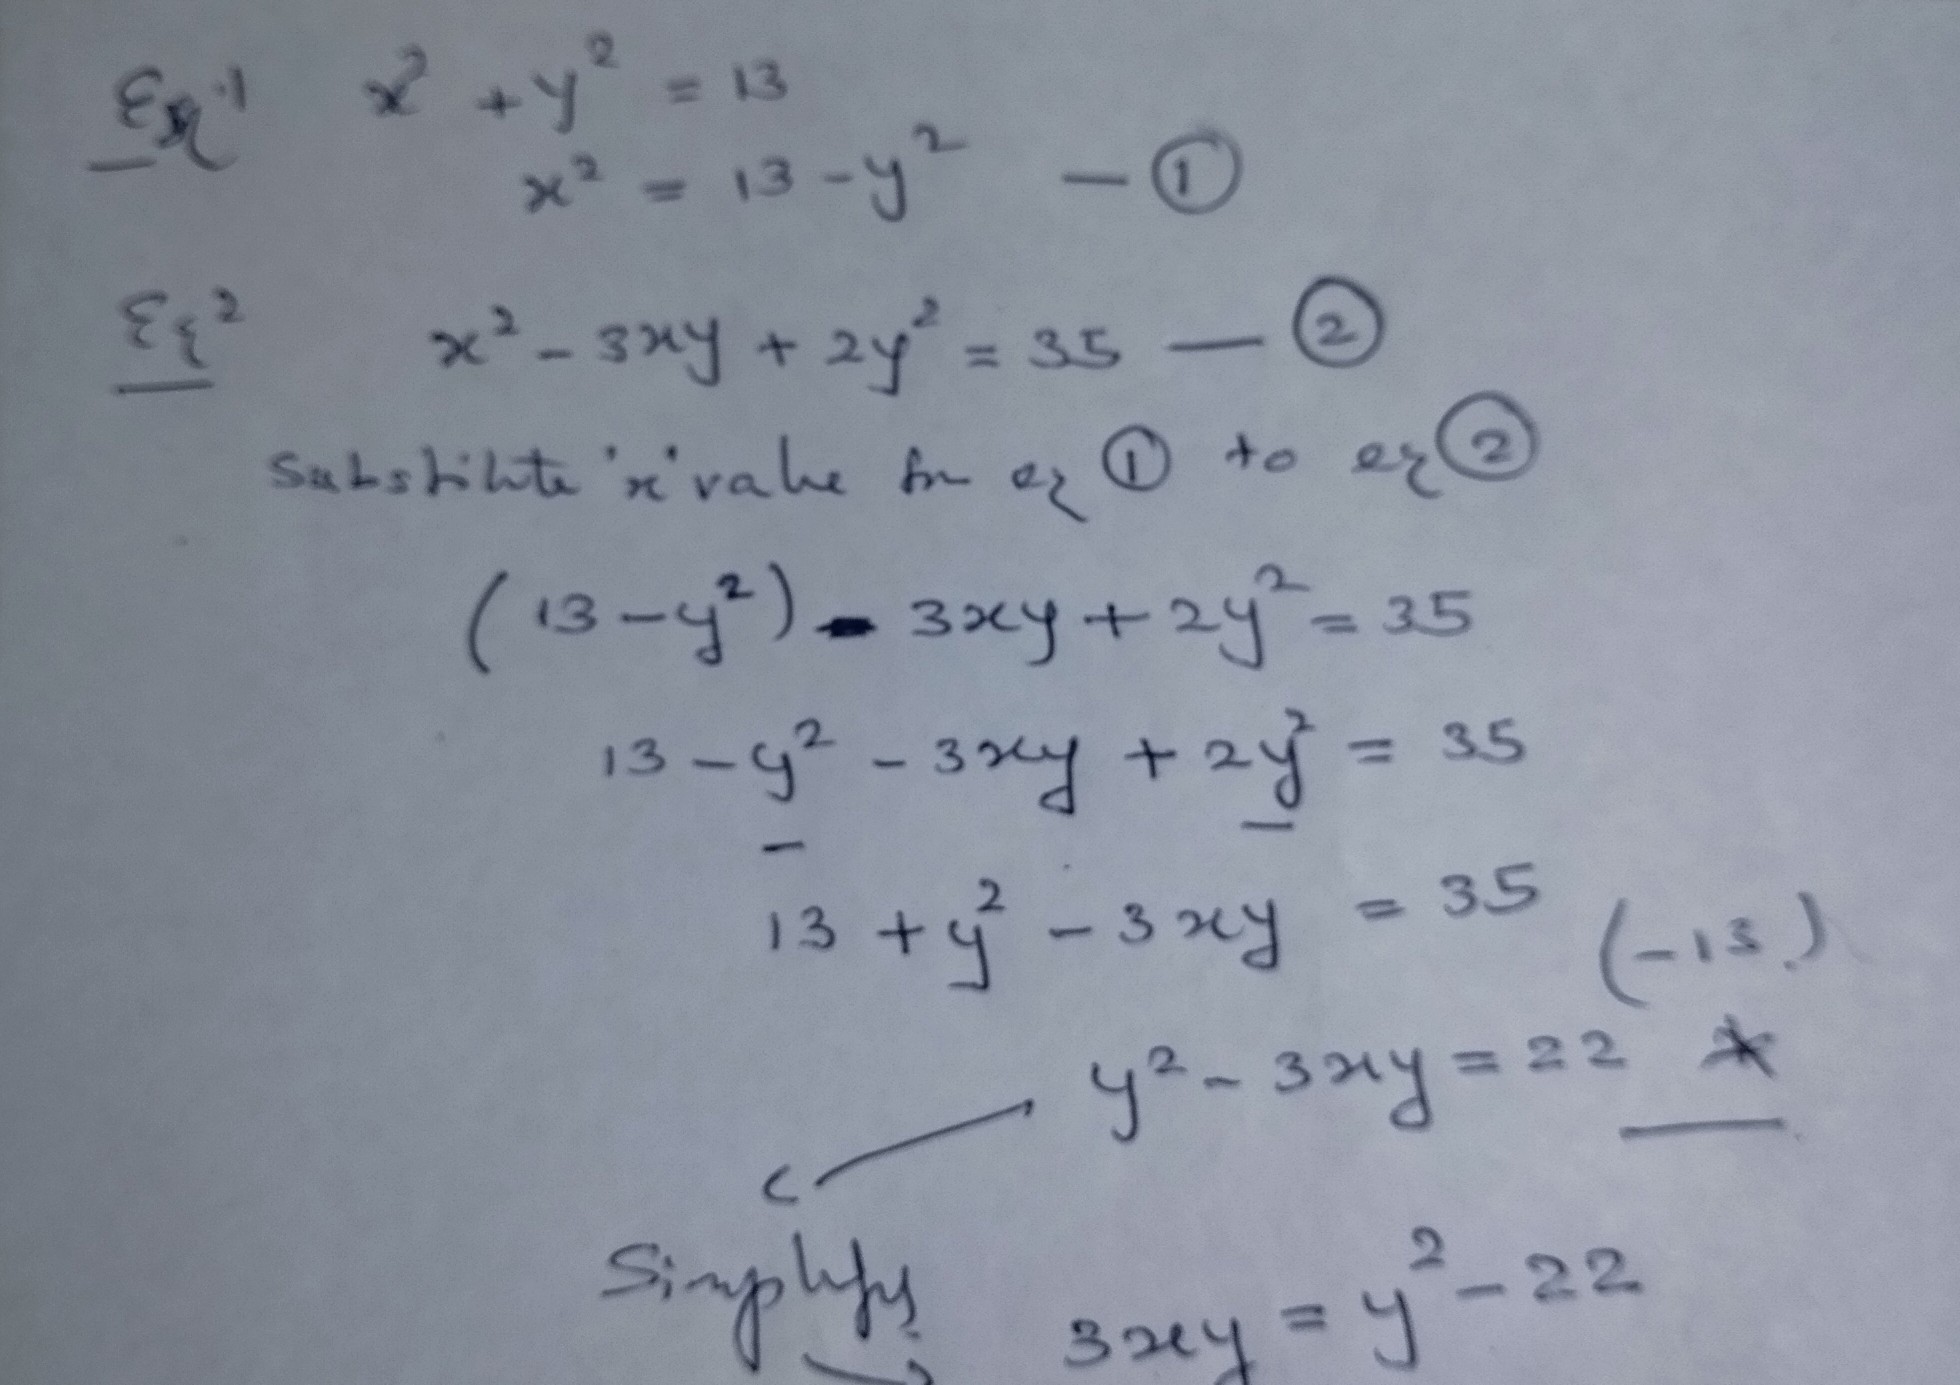 Eq 1 x² + y² = 13
x² = 13 - y² — ①
Eq 2 x² - 3xy + 2y² = 35 — ②
Substitute 'x' value in eq ① to eq ②
(13 - y²) - 3xy + 2y² = 35
13 - y² - 3xy + 2y² = 35
13 + y² - 3xy = 35 (-13)
y² - 3xy = 22 *
Simplify
3xy = y² - 22